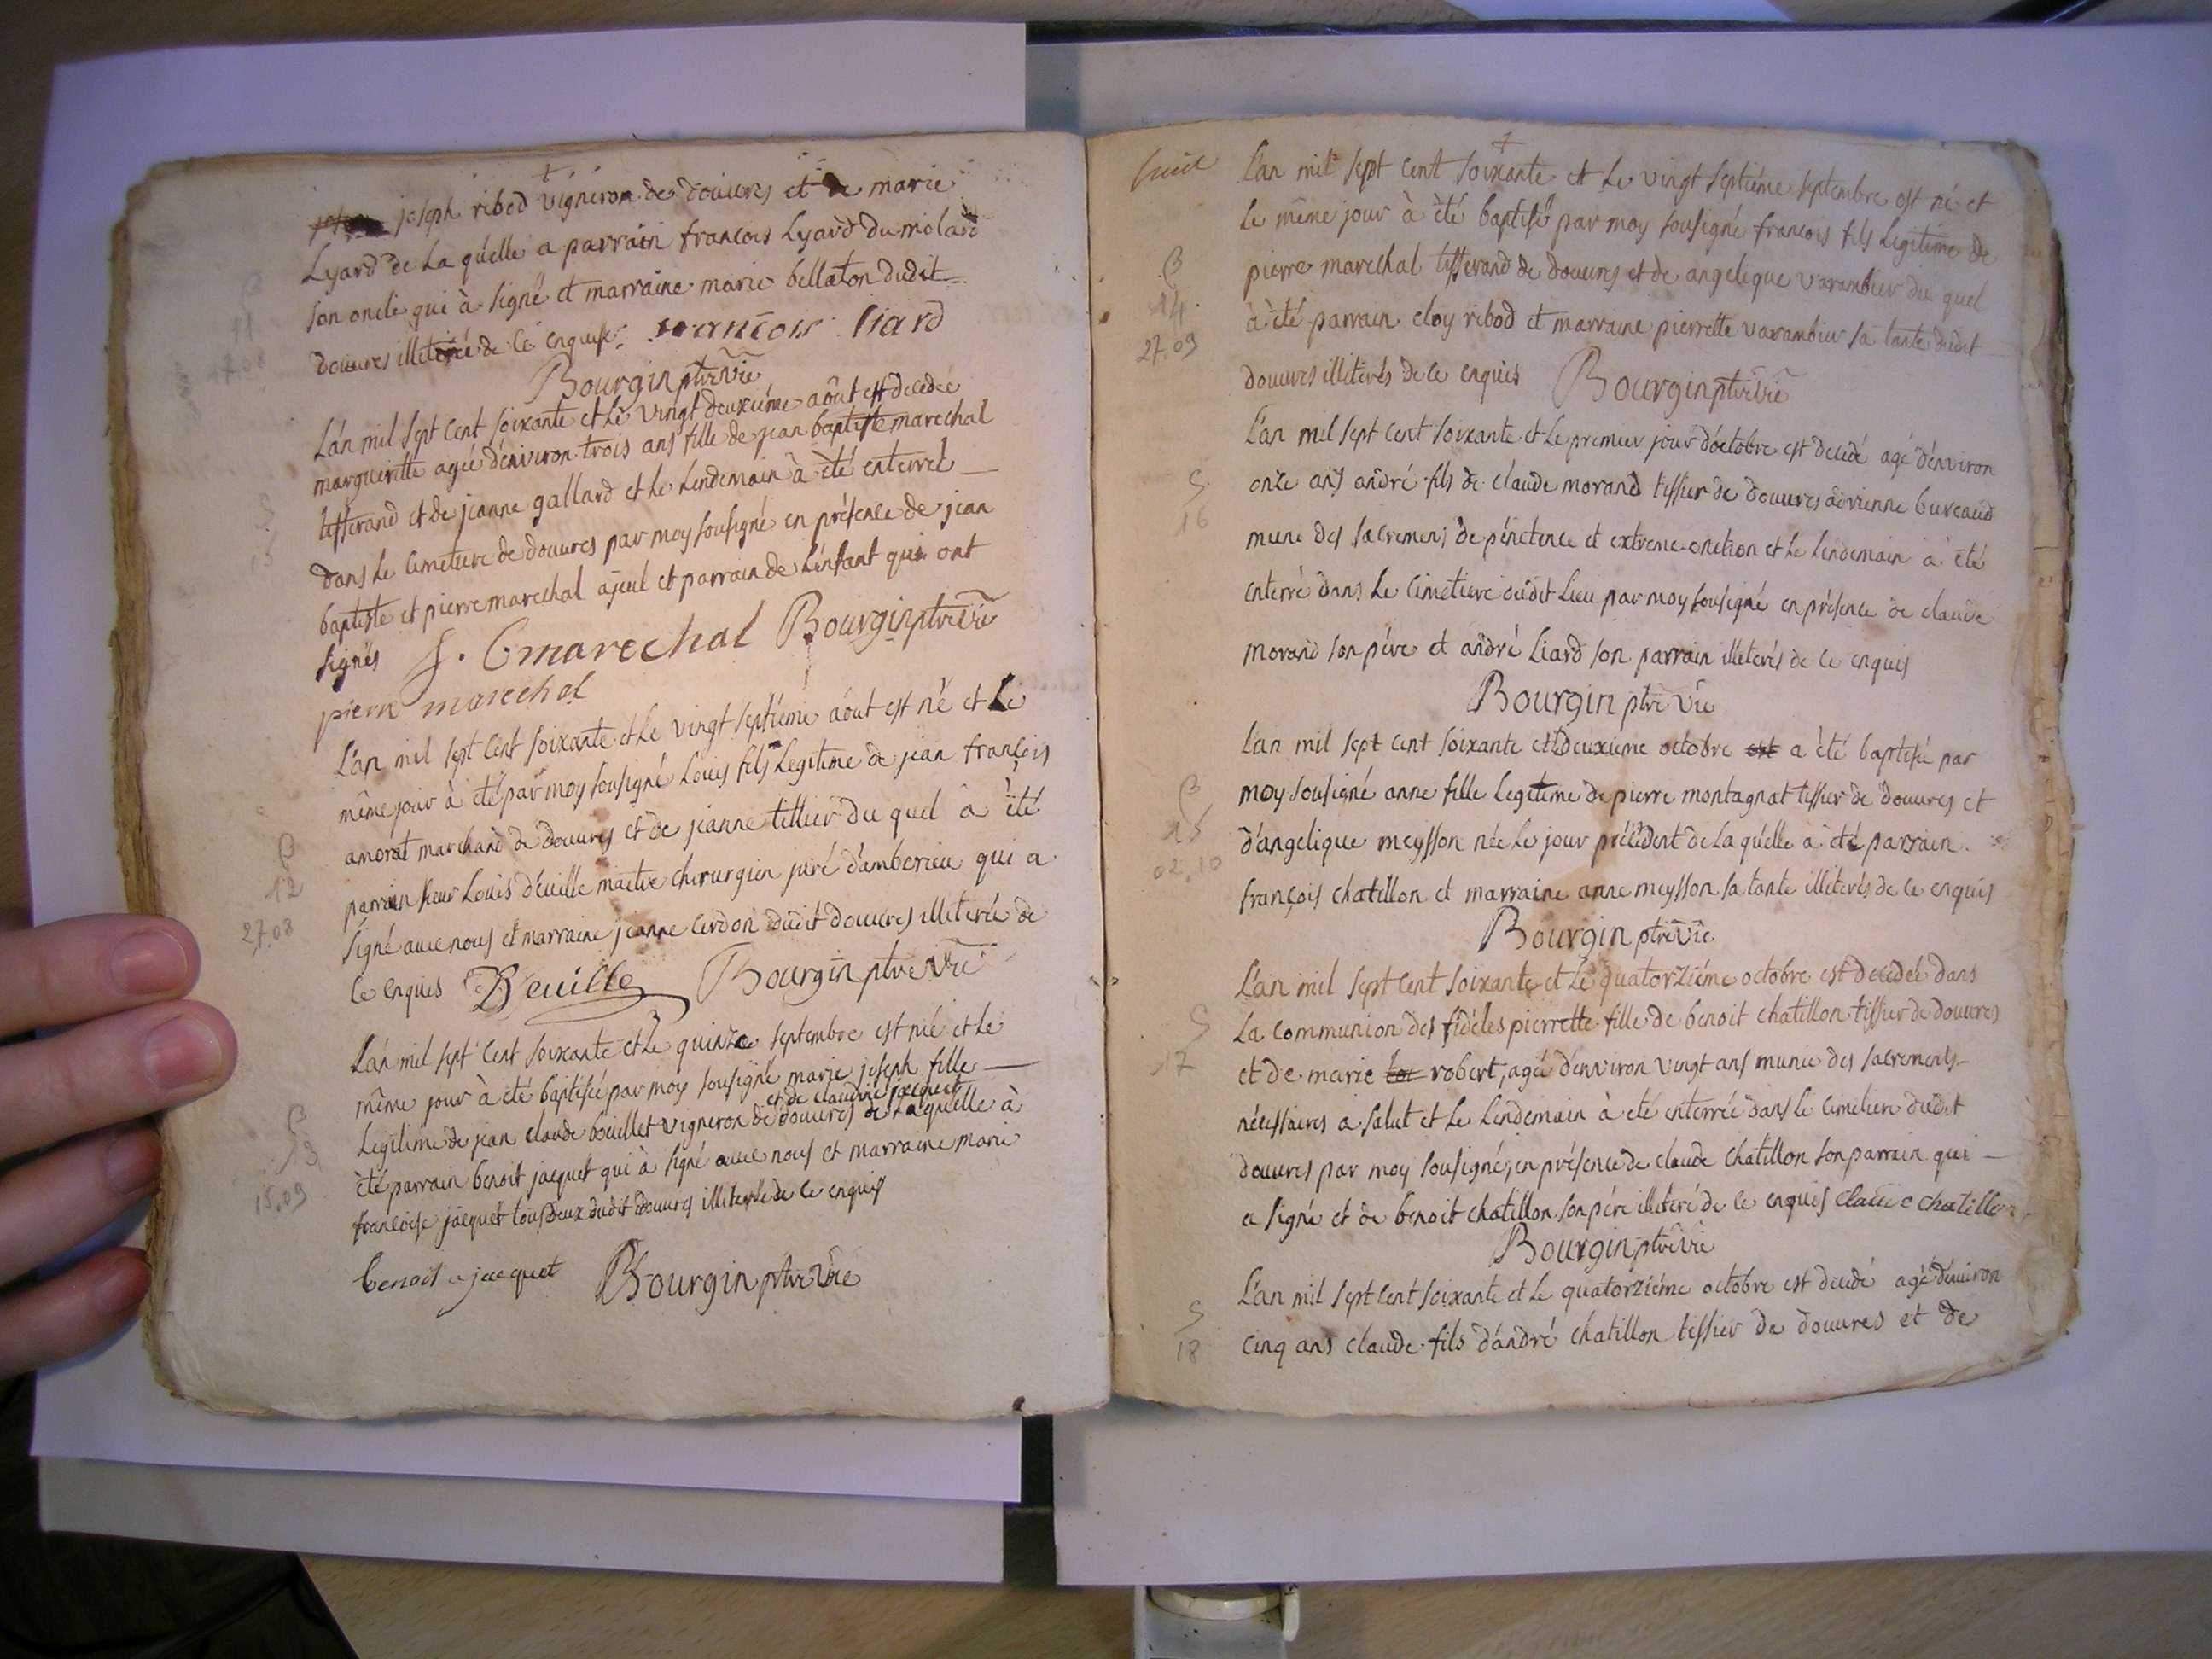 joseph ribod vigneron de douures et de marie
Lyard de La quelle a parrain francois Lyard du molard
son oncle qui à signé et marraine marie bellaton dudit
douures illiterée de ce enquise francois liard
Bourgin ptre vie
B
11
17.08
L'an mil sept cent soixante et Le vingt deuxiéme aôut est decedée
margueritte agée d'environ trois ans fille de jean baptiste marechal
tisserand et de jeanne gallard et Le Lendemain à été enterrée
dans Le cimetiere de douures par moy sousigné en présence de jean
baptiste et pierre marechal ajeul et parrain de L'enfant qui ont
signés J. B marechal Bourgin ptre vie
pierre marechal
S
15
L'an mil sept cent soixante et Le vingt septiéme aôut est né et Le
même jour à été par moy sousigné Louis fils Legitime de jean françois
amorat marchand de douures et de jeanne tillier du quel a été
parrain sieur Louis d'euille maitre chirurgien juré d'amberieu qui a
signé avec nous et marraine jeanne cerdon dudit douures illiterée de
ce enquis Deuille Bourgin ptre vie
B
12
27.08
L'an mil sept cent soixante et Le quinze septembre est née et Le
même jour à été baptisée par moy sousigné marie joseph fille
et de claudine jacquet
Legitime de jean claude bouillet vigneron de douures de Laquelle à
été parrain benoit jacquet qui à signé avec nous et marraine marie
francoise jacquet tous deux dudit douures illiterée de ce enquis
benoit jacquet Bourgin ptre vie
B
13
15.09
huit
L'an mil sept cent soixante et Le vingt septiéme septembre est né et
Le même jour à été baptisé par moy sousigné francois fils Legitime de
pierre marechal tisserand de douures et de angelique varambier du quel
à été parrain eloy ribod et marraine pierrette varambier sa tante dudit
douures illiterés de ce enquis Bourgin ptre vie
B
14
27.09
L'an mil sept cent soixante et Le premier jour d'octobre est decédé agé d'environ
onze ans andré fils de claude morand tissier de douures d'etienne bureaud
muni des sacremens de pénétence et extreme onction et Le Lendemain à été
enterré dans Le cimetiere dudit Lieu par moy sousigné en présence de claude
morand son pére et andré Liard son parrain illiterés de ce enquis
Bourgin ptre vie
S
16
L'an mil sept cent soixante et Le deuxiéme octobre est a été baptisée par
moy sousigné anne fille Legitime de pierre montagnat tissier de douures et
d'angelique meysson née Le jour précédent de La quelle à été parrain
françois chatillon et marraine anne meysson sa tante illiterés de ce enquis
Bourgin ptre vie
B
15
02.10
L'an mil sept cent soixante et Le quatorziéme octobre est decédée dans
La communion des fidéles pierrette fille de benoit chatillon tissier de douures
et de marie robert, agée d'environ vingt ans munie des sacrements
nécessaires a salut et Le Lendemain à eté enterrée dans le cimetiere dudit
douures par moy sousigné, en présence de claude chatillon son parrain qui
a signé et de benoit chatillon son pére illiteré de ce enquis claude chatillon
Bourgin ptre vie
S
17
L'an mil sept cent soixante et Le quatorziéme octobre est decedé agé d'environ
cinq ans claude fils d'andré chatillon tissier de douures et de
S
18